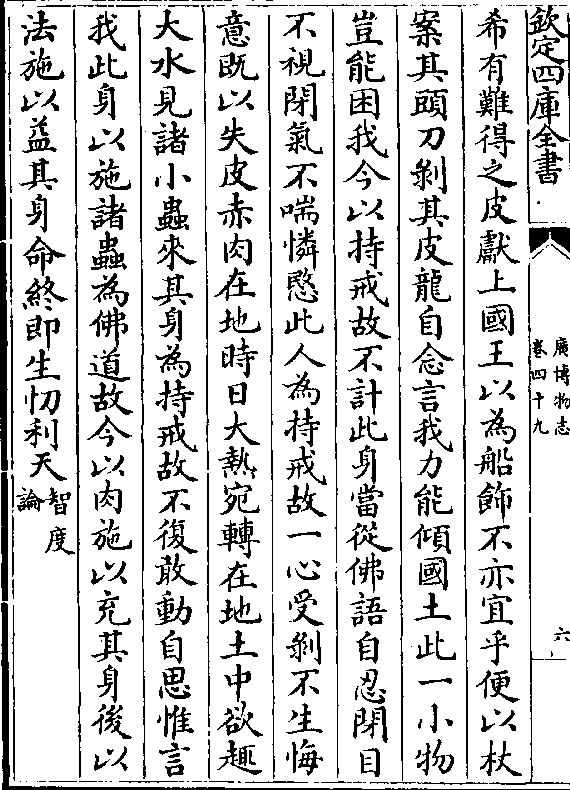 欽定四庫全書
廣博物志
卷四十九
六
希有難得之皮獻上國王以為船飾不亦宜乎便以杖
案其頭刀剝其皮龍自念言我力能傾國土此一小物
豈能困我今以持戒故不計此身當從佛語自忍閉目
不視閉氣不喘憐愍此人為持戒故一心受剝不生悔
意既以失皮赤肉在地時日大熱宛轉在地土中欲趣
大水見諸小蟲來其身為持戒故不復敢動自思惟言
我此身以施諸蟲為佛道故今以肉施以充其身後以
法施以益其身命終即生忉利天智度
論